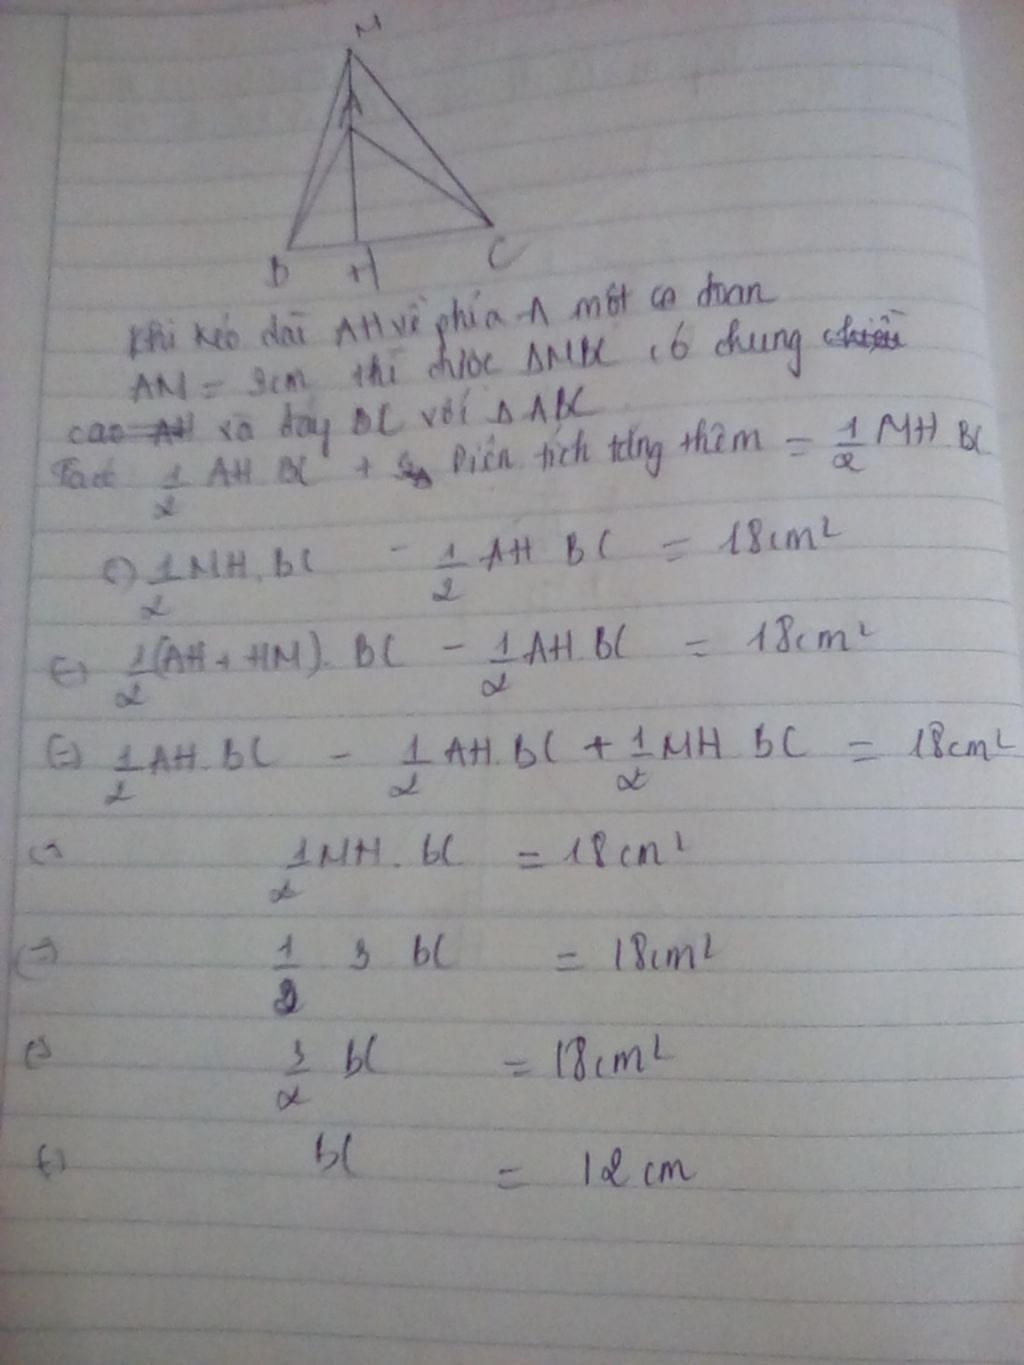 M
A
B H C
Khi kéo dài AH về phía A một đoạn
AM = 3cm thì được ΔMBC có chung
cao AH và đáy BC với ΔABC
Ta có 1/2 AH BC + Diện tích tăng thêm = 1/2 MH BC
(=) 1/2 MH. BC - 1/2 AH BC = 18cm²
(=) 1/2 (AH + HM). BC - 1/2 AH. BC = 18cm²
(=) 1/2 AH. BC - 1/2 AH. BC + 1/2 MH BC = 18cm²
(=) 1/2 MH. BC = 18cm²
(=) 1/2 3 BC = 18cm²
(=) 3/2 BC = 18cm²
(=) BC = 12cm